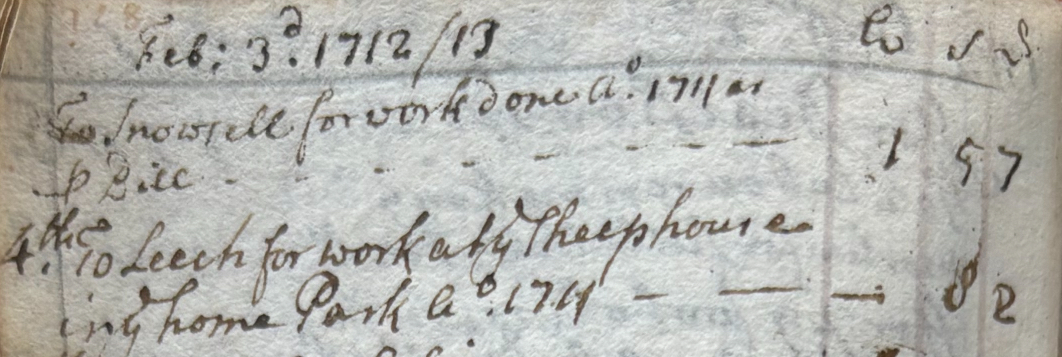 Feb: 3d. 1712/13 lb s d
To Snowsell for work done Ao. 1711 as
p Bill - - - - - - 1 5 7
4th. To Leech for work at ye Sheephouse
in ye home Park Ao. 1711 - - - 8 2